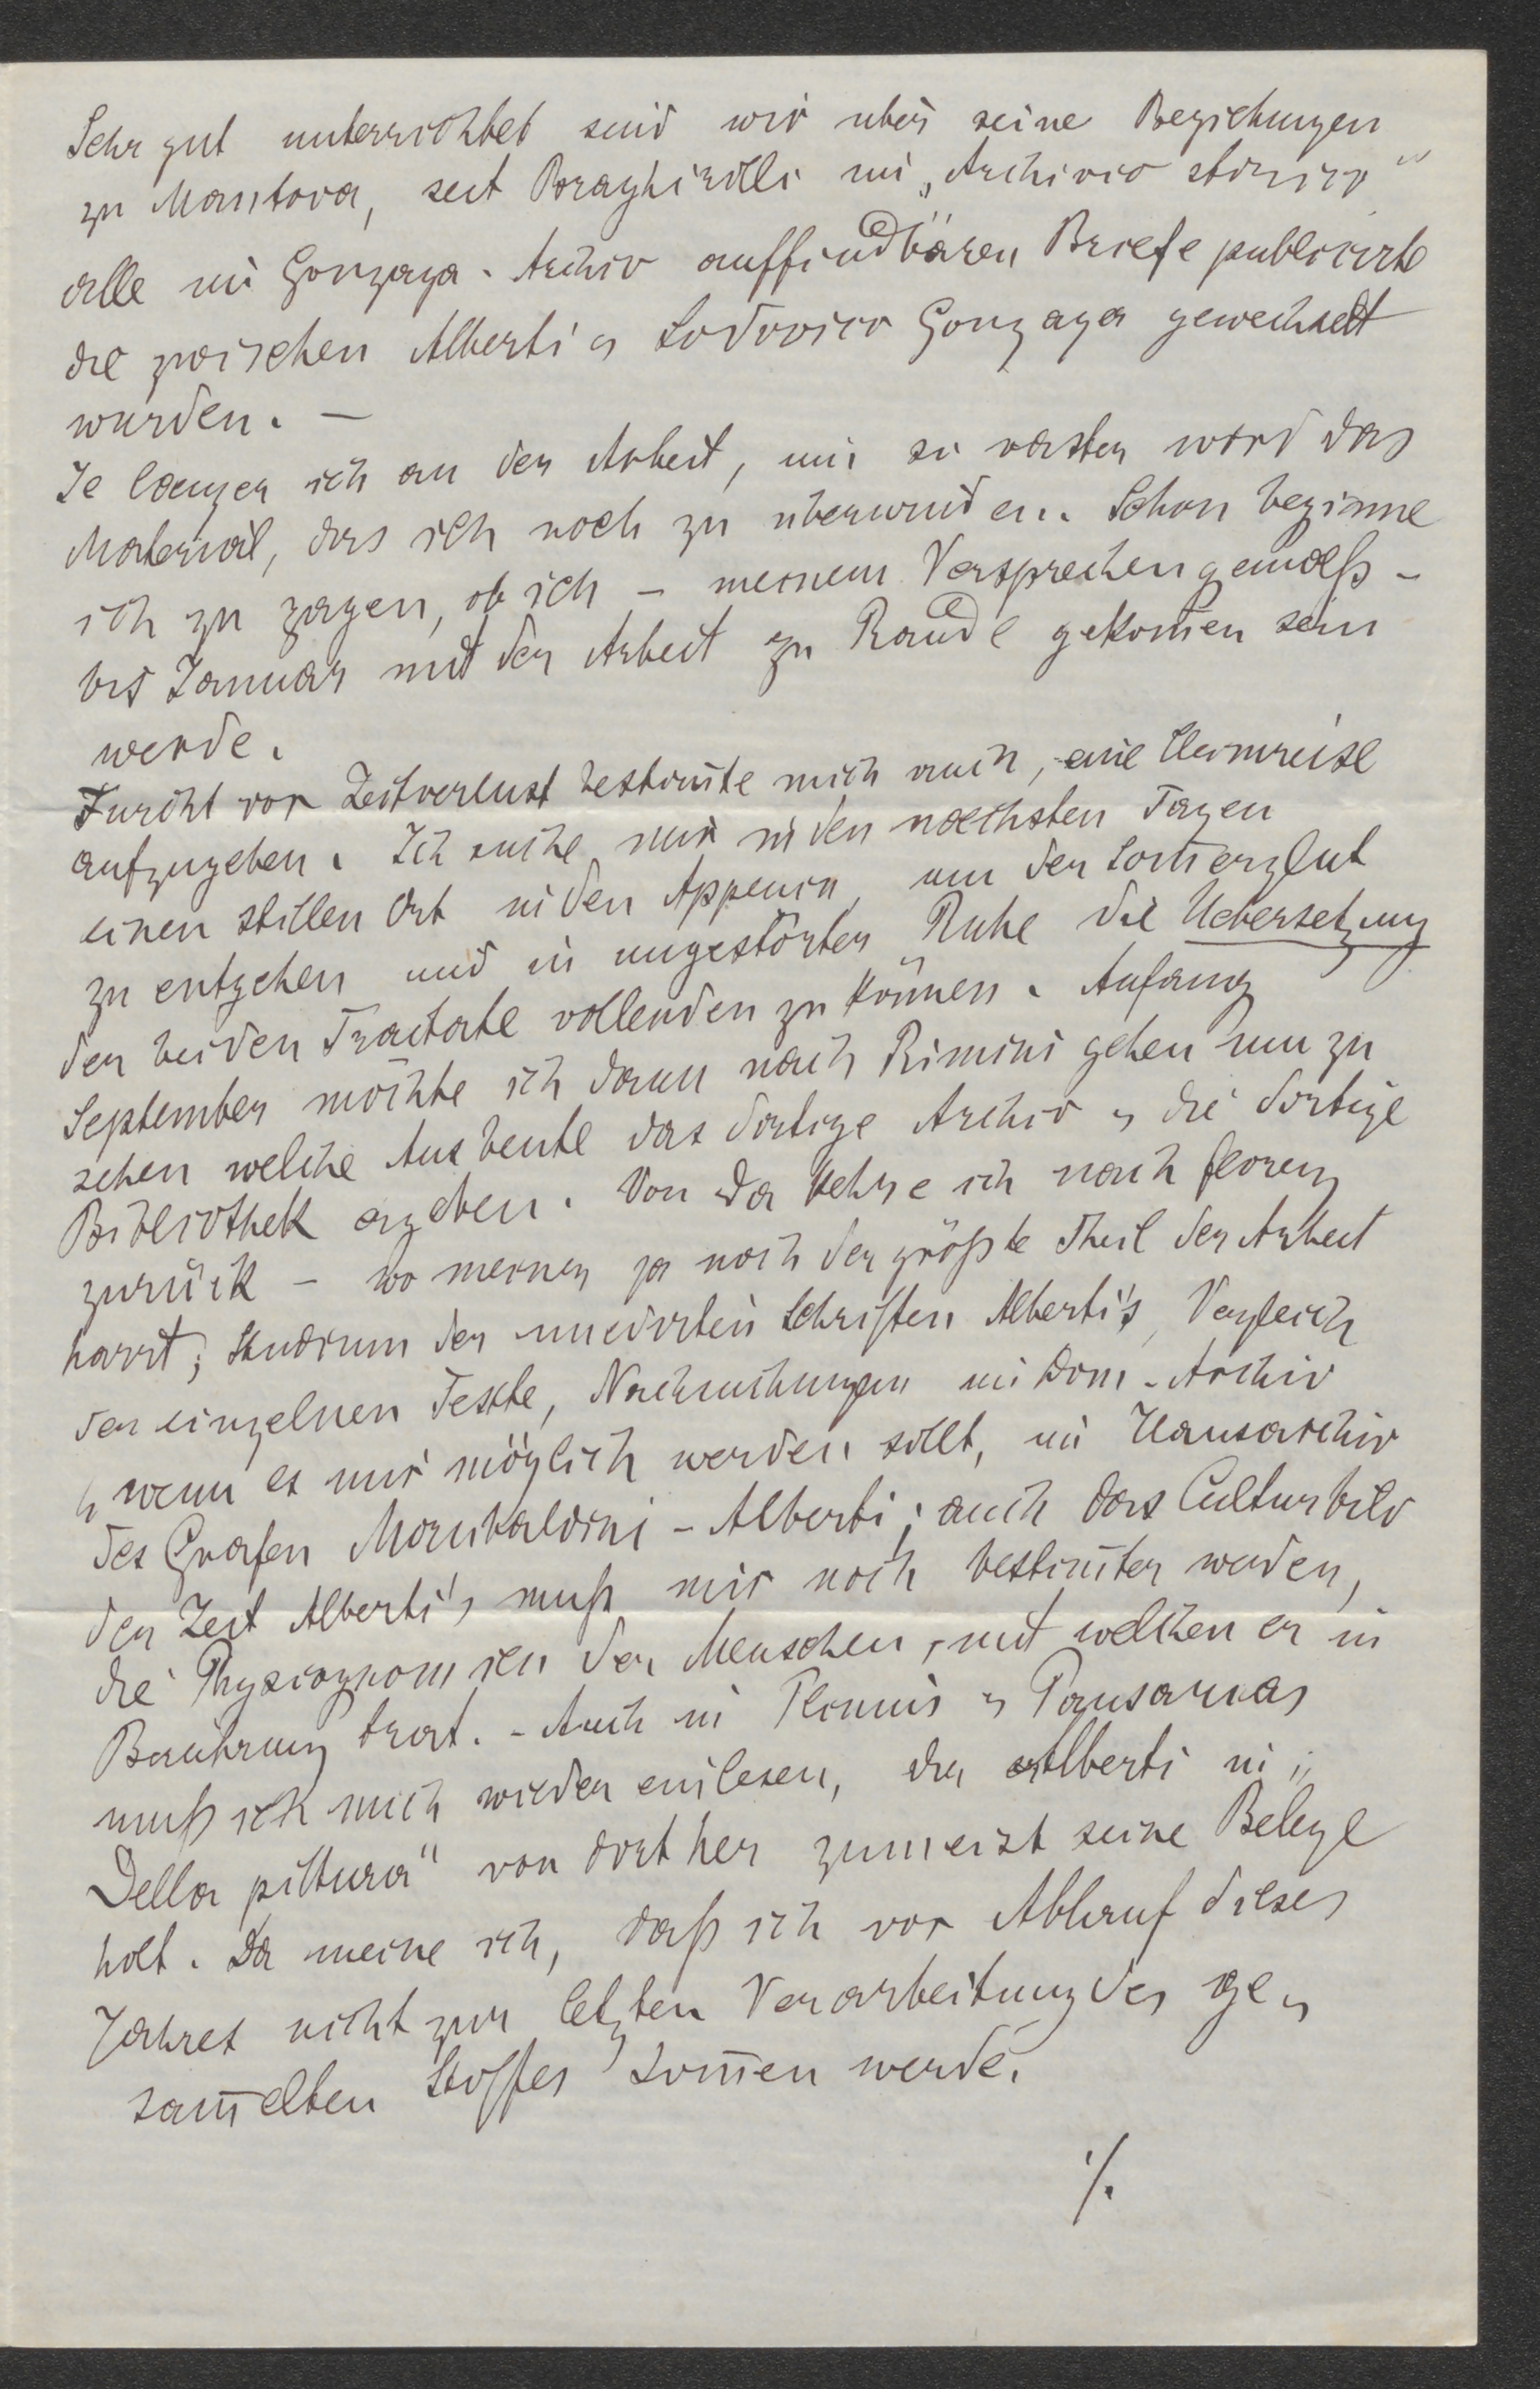 Sehr gut unterrichtet sind wir über seine Beziehungen
zu Mantova, seit Braghirolli im „Archivio storico“
alle im Gonzaga-Archiv auffindbaren Briefe publicirte
die zwischen Alberti u Lodovico Gonzaga gewechselt
wurden. —
Je laenger ich an der Arbeit, um so vaster wird das
Material, das ich noch zu überwinden. Schon beginne
ich zu zagen, ob ich – meinem Versprechen gemaeß –
bis Januar mit der Arbeit zu Rande gekom̄en sein
werde.
Furcht vor Zeitverlust bestim̄te mich auch, eine Heimreise
aufzugeben. Ich suche mir in den naechsten Tagen
einen stillen Ort in den Appenin, um der Som̄erglut
zu entgehen und in ungestörter Ruhe die Uebersetzung
der beiden Tractate vollenden zu können. Anfang
September möchte ich dann nach Rimini gehen um zu
sehen welche Ausbeute das dortige Archiv u die dortige
Bibliothek ergeben. Von da kehre ich nach Florenz
zurück – wo meiner ja noch der größte Theil der Arbeit
harrt; Studium der unedirten Schriften Alberti's, Vergleich
der einzelnen Texte, Nachsuchungen im Dom-Archiv
u wenn es mir möglich werden sollt, im Hausarchiv
des Grafen Mornbaldini-Alberti; auch das Culturbild
der Zeit Alberti's muß mir noch bestim̄ter werden,
die Physiognomien der Menschen, mit welchen er in
Berührung trat. – Auch in Plinius u Pausanias
muß ich mich wieder einlesen, da Alberti in „
Della pittura“ von dorther zumeist seine Belege
holt. Da meine ich, daß ich vor Ablauf dieses
Jahres nicht zur letzten Verarbeitung des ge-
sam̄elten Stoffes kom̄en werde.
./.